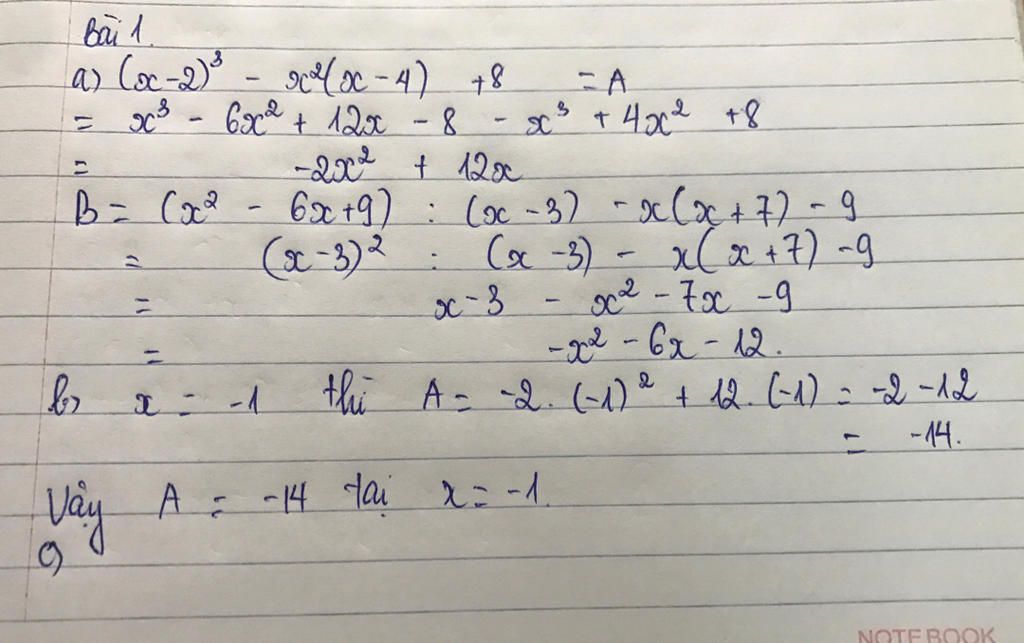 Bài 1.
a) (x-2)³ - x²(x-4) +8 = A
= x³ - 6x² + 12x - 8 - x³ + 4x² +8
= -2x² + 12x
B = (x² - 6x+9) : (x-3) - x(x+7) - 9
= (x-3)² : (x-3) - x(x+7) -9
= x-3 - x² - 7x -9
= -x² - 6x - 12.
b, x = -1 thì A = -2. (-1)² + 12. (-1) = -2 -12
= -14.
Vậy A = -14 tại x = -1.
c)
NOTEBOOK